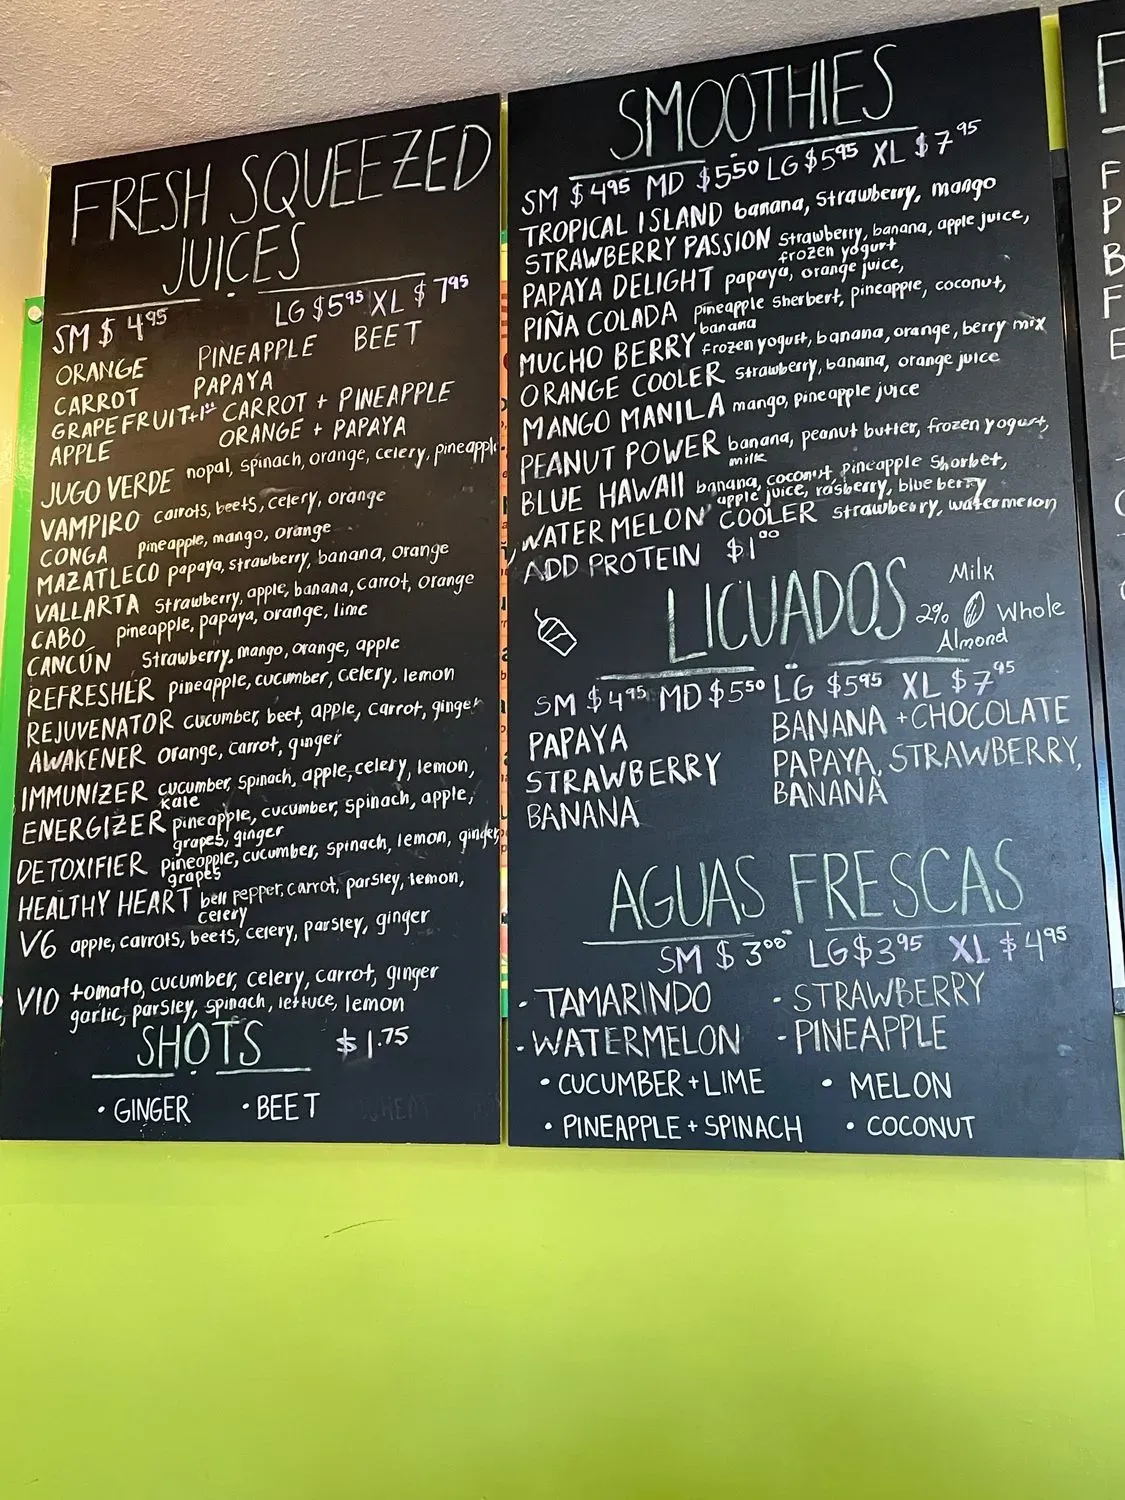 FRESH SQUEEZED
JUICES
SM $4.95 LG $5.95 XL $7.95
ORANGE PINEAPPLE BEET
CARROT PAPAYA
GRAPEFRUIT+1 CARROT + PINEAPPLE
APPLE ORANGE + PAPAYA
JUGO VERDE nopal, spinach, orange, celery, pineapple
VAMPIRO carrots, beets, celery, orange
CONGA pineapple, mango, orange
MAZATLECO papaya, strawberry, banana, orange
VALLARTA strawberry, apple, banana, carrot, orange
CABO pineapple, papaya, orange, lime
CANCÚN Strawberry, mango, orange, apple
REFRESHER pineapple, cucumber, celery, lemon
REJUVENATOR cucumber, beet, apple, carrot, ginger
AWAKENER orange, carrot, ginger
IMMUNIZER cucumber, spinach, apple, celery, lemon,
kale
ENERGIZER pineapple, cucumber, spinach, apple,
grapes, ginger
DETOXIFIER pineapple, cucumber, spinach, lemon, ginger,
grapes
HEALTHY HEART bell pepper, carrot, parsley, lemon,
celery
V6 apple, carrots, beets, celery, parsley, ginger
V10 tomato, cucumber, celery, carrot, ginger
garlic, parsley, spinach, lettuce, lemon
SHOTS $1.75
• GINGER • BEET
SMOOTHIES
SM $4.95 MD $5.50 LG $5.95 XL $7.95
TROPICAL ISLAND banana, strawberry, mango
STRAWBERRY PASSION strawberry, banana, apple juice,
frozen yogurt
PAPAYA DELIGHT papaya, orange juice,
PIÑA COLADA pineapple sherbert, pineapple, coconut,
banana
MUCHO BERRY frozen yogurt, banana, orange, berry mix
ORANGE COOLER strawberry, banana, orange juice
MANGO MANILA mango, pineapple juice
PEANUT POWER banana, peanut butter, frozen yogurt,
milk
BLUE HAWAII banana, coconut, pineapple shorbet,
apple juice, rasberry, blueberry
WATERMELON COOLER strawberry, watermelon
ADD PROTEIN $1.00
LICUADOS Milk
2% Whole
Almond
SM $4.95 MD $5.50 LG $5.95 XL $7.95
PAPAYA BANANA + CHOCOLATE
STRAWBERRY PAPAYA, STRAWBERRY,
BANANA BANANA
AGUAS FRESCAS
SM $3.00 LG $3.95 XL $4.95
- TAMARINDO - STRAWBERRY
- WATERMELON - PINEAPPLE
• CUCUMBER + LIME • MELON
• PINEAPPLE + SPINACH • COCONUT
F
F
P
B
F
E